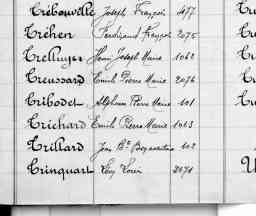 Trébouville Joseph François 477
Tréhen Ferdinand François 2075
Trelluyer Henri Joseph Marie 1062
Treussard Emile Pierre Marie 2076
Tribodet Alphonse Pierre Marie 101
Trichard Emile Pierre Marie 1063
Trillard Jean Bte Bonaventure 102
Trinquart 2078